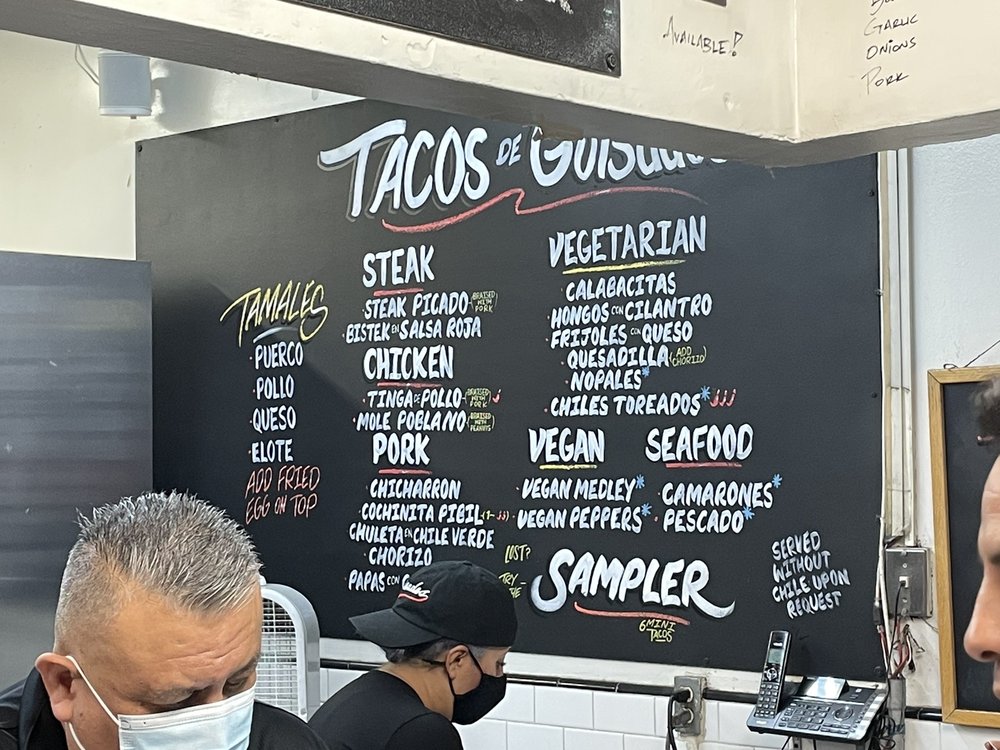 AVAILABLE!
GARLIC
ONIONS
PORK
TACOS DE GUISADOS
TAMALES
· PUERCO
· POLLO
· QUESO
· ELOTE
ADD FRIED
EGG ON TOP
STEAK
· STEAK PICADO (BRAISED WITH PORK)
· BISTEK EN SALSA ROJA
CHICKEN
· TINGA DE POLLO (BRAISED WITH PORK)
· MOLE POBLANO (BRAISED WITH PEANUTS)
PORK
· CHICHARRON
· COCHINITA PIBIL
· CHULETA EN CHILE VERDE
· CHORIZO
· PAPAS CON
VEGETARIAN
· CALABACITAS
· HONGOS CON CILANTRO
· FRIJOLES CON QUESO
· QUESADILLA (ADD CHORIZO)
· NOPALES*
· CHILES TOREADOS*
VEGAN
· VEGAN MEDLEY*
· VEGAN PEPPERS*
SEAFOOD
· CAMARONES*
· PESCADO*
LOST?
TRY
THE
SAMPLER
6 MINI
TACOS
SERVED
WITHOUT
CHILE UPON
REQUEST